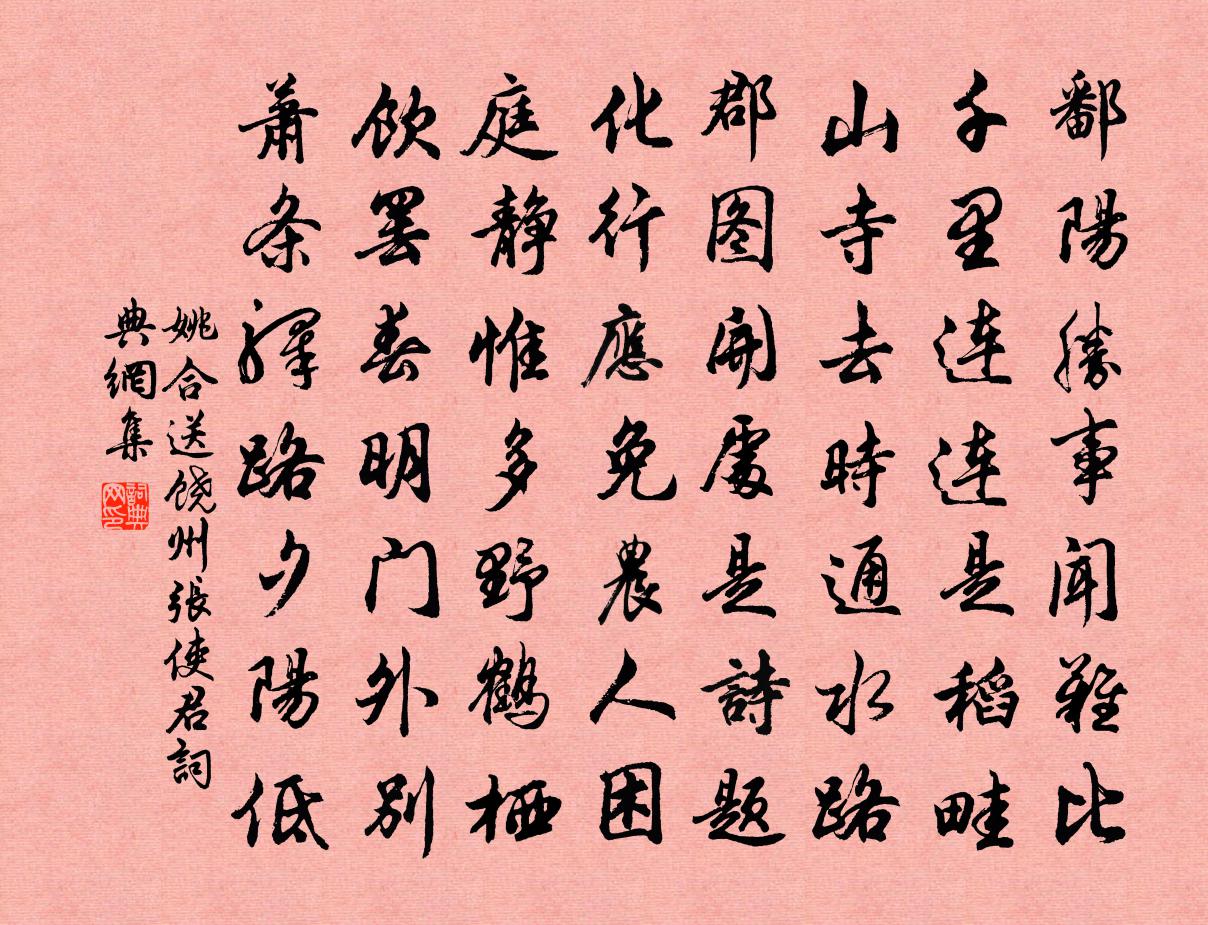 鄱陽勝事聞難比
千里連連是稻畦
山寺去時通水路
郡图開處是詩題
化行應免農人困
庭靜惟多野鶴栖
飲罢春明门外別
萧条驛路夕陽低
姚合送饶州張使君詞
典網集
詞典网印